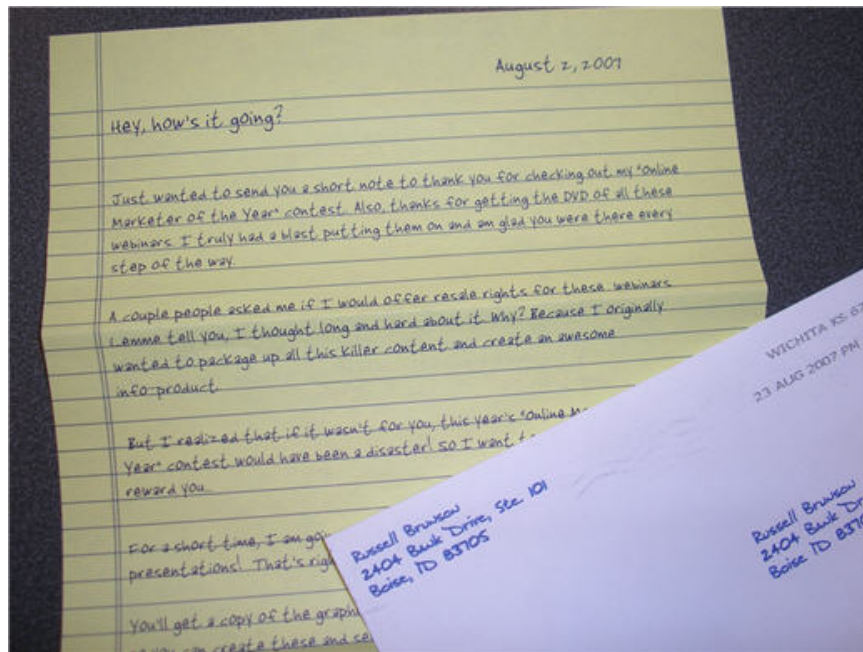 August 2, 2007
Hey, how's it going?
Just wanted to send you a short note to thank you for checking out my "Online
Marketer of the Year" contest. Also, thanks for getting the DVD of all these
webinars. I truly had a blast putting them on and am glad you were there every
step of the way.
A couple people asked me if I would offer resale rights for these webinars.
Lemme tell you, I thought long and hard about it. Why? Because I originally
wanted to package up all this killer content and create an awesome
info product.
But I realized that if it wasn't for you, this year's "Online
Year" contest would have been a disaster! So I want
reward you.
For a short time, I am
presentations! That's
You'll get a copy of the
you can create these and
WICHITA KS
23 AUG 2007 PM
Russell Brunson
2404 Bank Drive, Ste. 101
Boise, ID 83705
Russell Brunson
2404 Bank
Boise ID